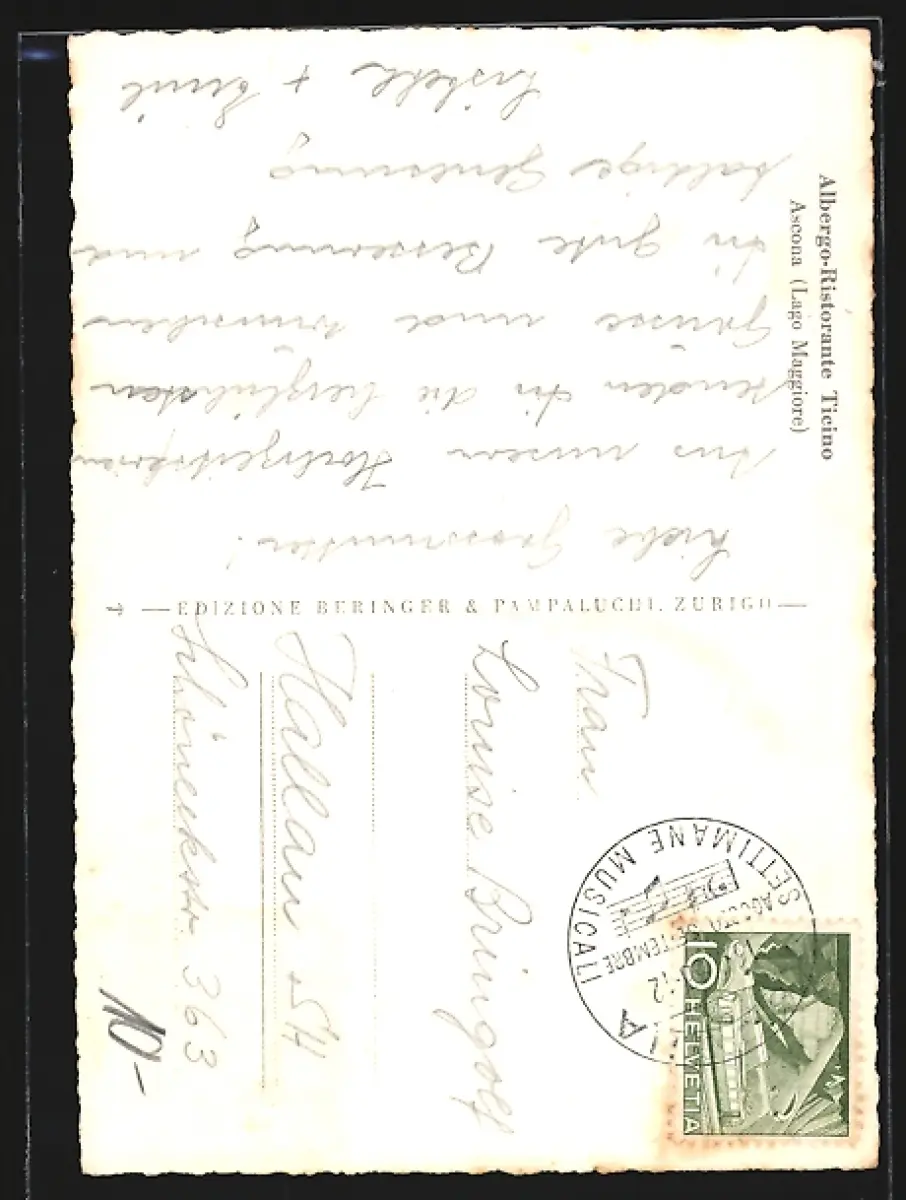 Albergo-Ristorante Ticino
Ascona (Lago Maggiore)
Liebe Grossmutter!
Aus unsern
senden Dir die herzlichsten
Grüsse und wünschen
Dir gute Besserung und
baldige Genesung
+ Emil
EDIZIONE BERINGER & PAMPALUCHI, ZURIGO
Frau
Louise Bringolf
Hallau SH
363
10.-
SETTIMANE MUSICALI
AGOSTO SETTEMBRE
10 HELVETIA